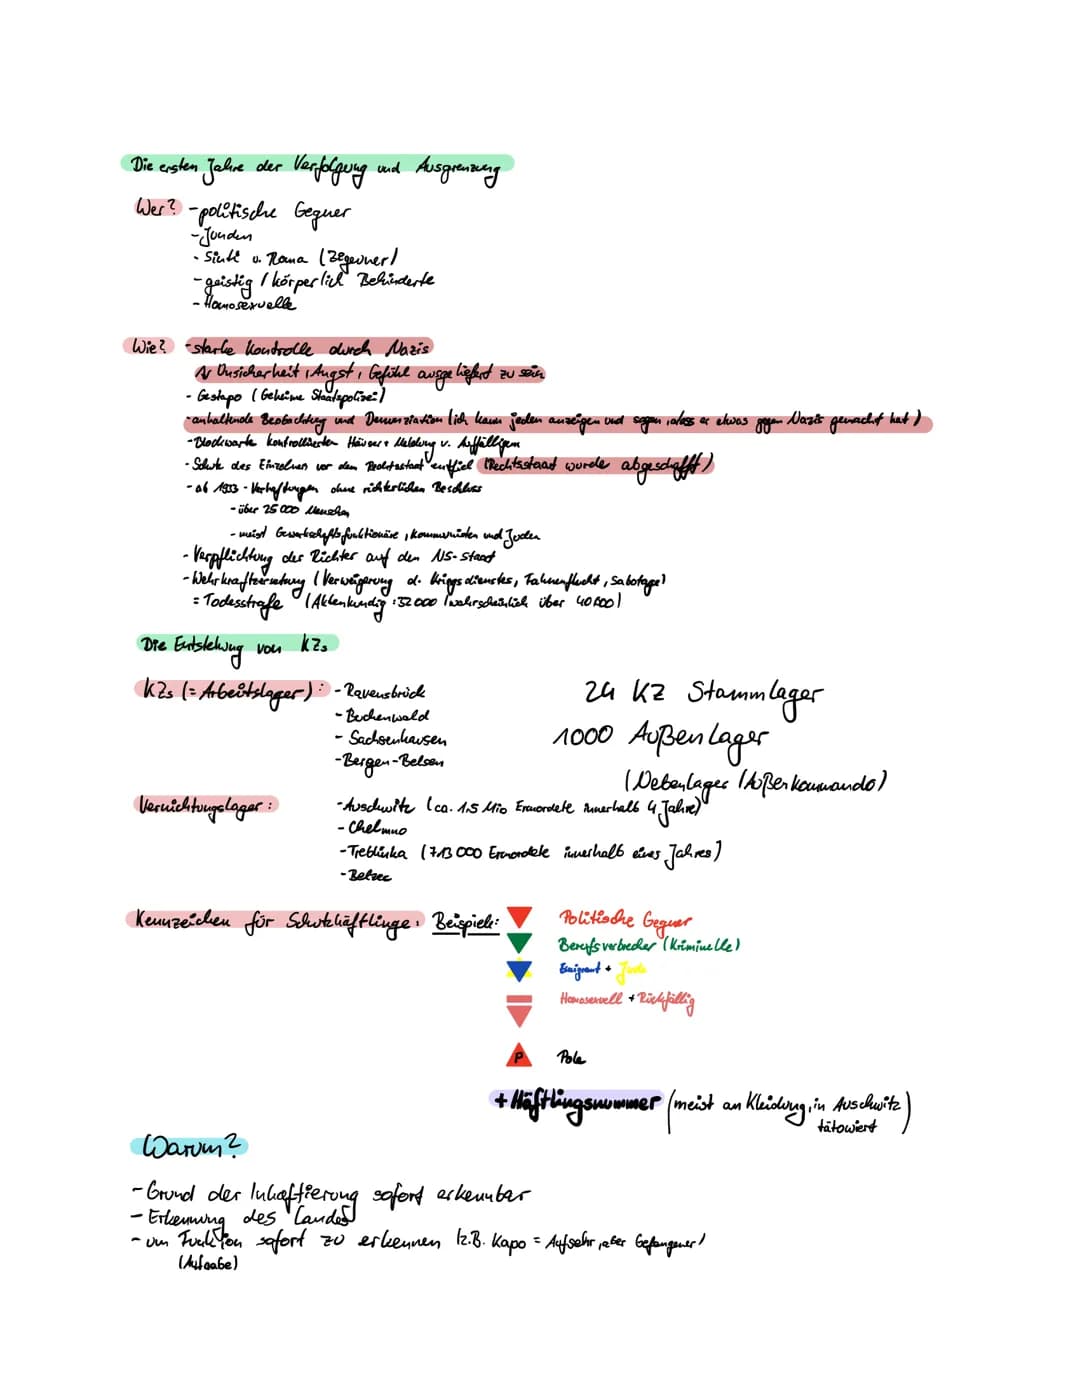 Die ersten Jahre der Verfolgung und Ausgrenzung
Wer? - politische Gegner
- Junden
- Sinti u. Roma (Zegeuner)
- geistig / körperlich Behinderte
- Homosexuelle
Wie? - starke Kontrolle durch Nazis
Unsicherheit, Angst, Gefühl ausgeliefert zu sein
- Gestapo (Geheime Staatspolizei)
- anhaltende Beobachtung und Denunziation (ich kann jeden anzeigen und sagen, dass er etwas gegen Nazis gemacht hat)
- Blockwarte kontrollierten Häuser + Meldung v. Auffälligem
- Schutz des Einzelnen vor dem Rechtsstaat entfiel (Rechtsstaat wurde abgeschafft)
- ab 1933 - Verhaftungen ohne richterlichen Beschluss
- über 25 000 Menschen
- meist Gewerkschaftsfunktionäre, Kommunisten und Juden
- Verpflichtung der Richter auf den NS-Staat
- Wehrkraftzersetzung (Verweigerung d. Kriegsdienstes, Fahnenflucht, Sabotage)
= Todesstrafe (Aktenkundig: 32 000 / wahrscheinlich über 40 000)
Die Entstehung von KZs
KZs (= Arbeitslager): - Ravensbrück
- Buchenwald
- Sachsenhausen
- Bergen-Belsen
24 KZ Stammlager
1000 Außenlager
(Nebenlager / Außenkommando)
Vernichtungslager:
- Auschwitz (ca. 1.5 Mio Ermordete innerhalb 4 Jahre)
- Chelmno
- Treblinka (713 000 Ermordete innerhalb eines Jahres)
- Belzec
Kennzeichen für Schutzhäftlinge: Beispiele: Politische Gegner
Berufsverbrecher (Kriminelle)
Emigrant + Jude
Homosexuell + Rückfällig
P Pole
+ Häftlingsnummer (meist an Kleidung, in Auschwitz tätowiert)
Warum?
- Grund der Inhaftierung sofort erkennbar
- Erkennung des Landes
- um Funktion sofort zu erkennen (z.B. Kapo = Aufsehr, aber Gefangener)
(Aufgabe)